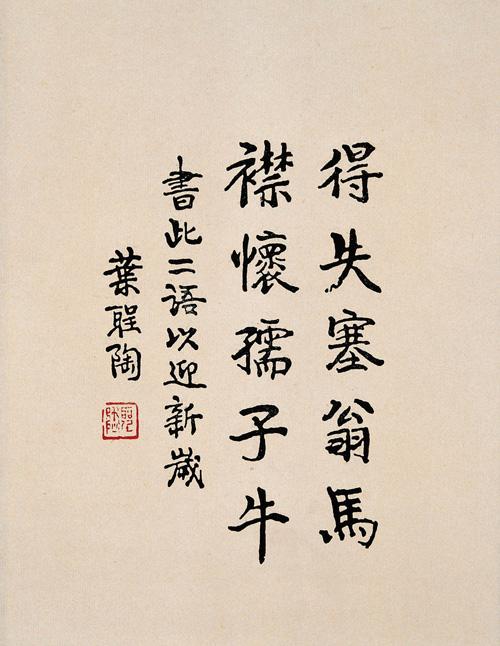 得失塞翁馬
襟懷孺子牛
書此二语以迎新歲
葉聖陶